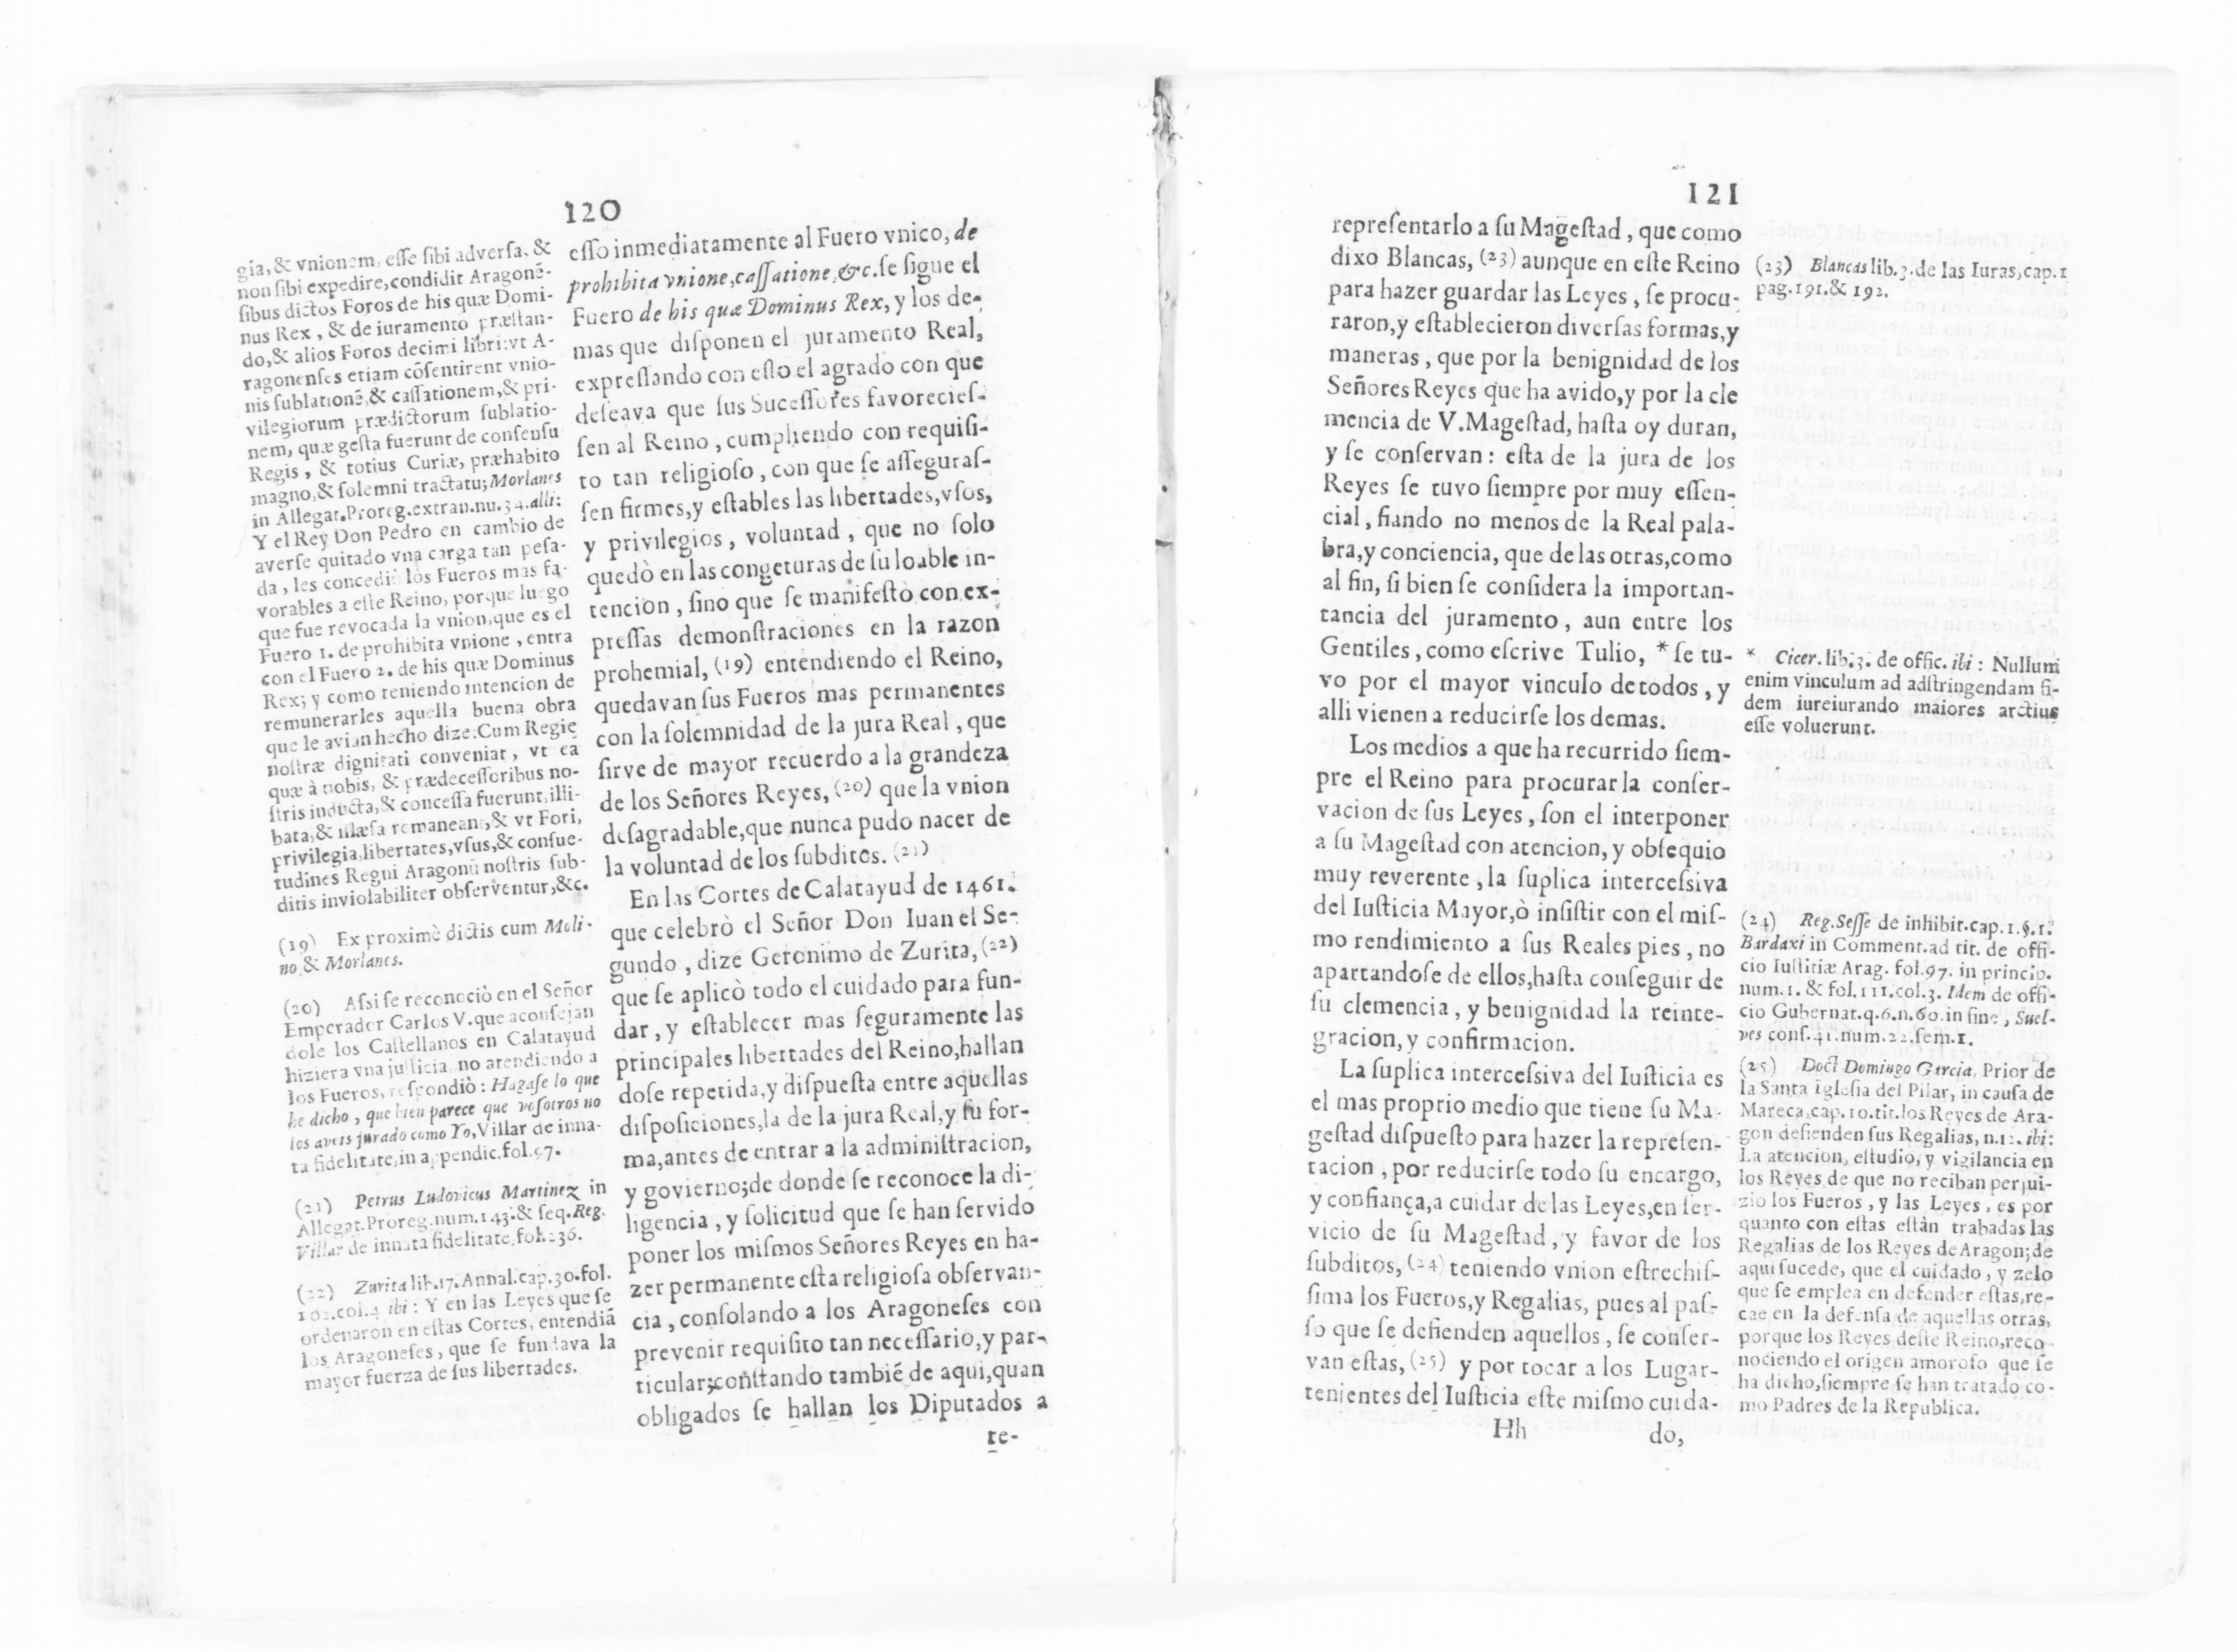 120
gia, & vnionem, esse sibi adversa, &
non sibi expedire, condidit Aragonē-
sibus dictos Foros de his quæ Domi-
nus Rex, & de iuramento præstan-
do, & alios Foros decimi libri: vt A-
ragonenses etiam cōsentirent vnio-
nis sublationē, & cassationem, & pri-
vilegiorum prædictorum sublatio-
nem, quæ gesta fuerunt de consensu
Regis, & totius Curiæ, præhabito
magno, & solemni tractatu; Morlanes
in Allegat. Proreg. extran. nu. 34. alli:
Y el Rey Don Pedro en cambio de
averse quitado vna carga tan pesa-
da, les concediò los Fueros mas fa-
vorables a este Reino, porque luego
que fue revocada la vnion, que es el
Fuero 1. de prohibita vnione, entra
con el Fuero 2. de his quæ Dominus
Rex; y como teniendo intencion de
remunerarles aquella buena obra
que le avian hecho dize: Cum Regię
nostræ dignitati conveniat, vt ea
quæ à nobis, & prædecessoribus no-
stris inducta, & concessa fuerunt, illi-
bata, & illæsa remaneant, & vt Fori,
privilegia, libertates, vsus, & consue-
tudines Regni Aragonū nostris sub-
ditis inviolabiliter observentur, &c.
(19) Ex proximè dictis cum Moli-
no, & Morlanes.
(20) Assi se reconociò en el Señor
Emperador Carlos V. que aconsejan
dole los Castellanos en Calatayud
hiziera vna justicia, no atendiendo a
los Fueros, respondiò: Hagase lo que
he dicho, que bien parece que vosotros no
los aveis jurado como Yo, Villar de inna-
ta fidelitate, in appendic. fol. 97.
(21) Petrus Ludovicus Martinez in
Allegat. Proreg. num. 143. & seq. Reg.
Villar de innata fidelitate, fol. 236.
(22) Zurita lib. 17. Annal. cap. 30. fol.
102. col. 4 ibi: Y en las Leyes que se
ordenaron en estas Cortes, entendiā
los Aragoneses, que se fundava la
mayor fuerza de sus libertades.
esso inmediatamente al Fuero vnico, de
prohibita vnione, cassatione, &c. se sigue el
Fuero de his quæ Dominus Rex, y los de-
mas que disponen el juramento Real,
expressando con esto el agrado con que
deseava que sus Sucessores favorecies-
sen al Reino, cumpliendo con requisi-
to tan religioso, con que se asseguras-
sen firmes, y estables las libertades, vsos,
y privilegios, voluntad, que no solo
quedò en las congeturas de su loable in-
tencion, sino que se manifestò con ex-
pressas demonstraciones en la razon
prohemial, (19) entendiendo el Reino,
quedavan sus Fueros mas permanentes
con la solemnidad de la jura Real, que
sirve de mayor recuerdo a la grandeza
de los Señores Reyes, (20) que la vnion
desagradable, que nunca pudo nacer de
la voluntad de los subditos. (21)
En las Cortes de Calatayud de 1461.
que celebrò el Señor Don Iuan el Se-
gundo, dize Geronimo de Zurita, (22)
que se aplicò todo el cuidado para fun-
dar, y establecer mas seguramente las
principales libertades del Reino, hallan
dose repetida, y dispuesta entre aquellas
disposiciones, la de la jura Real, y su for-
ma, antes de entrar a la administracion,
y govierno; de donde se reconoce la di-
ligencia, y solicitud que se han servido
poner los mismos Señores Reyes en ha-
zer permanente esta religiosa observan-
cia, consolando a los Aragoneses con
prevenir requisito tan necessario, y par-
ticular; constando tambiē de aqui, quan
obligados se hallan los Diputados a
re-
121
representarlo a su Magestad, que como
dixo Blancas, (23) aunque en este Reino
para hazer guardar las Leyes, se procu-
raron, y establecieron diversas formas, y
maneras, que por la benignidad de los
Señores Reyes que ha avido, y por la cle
mencia de V. Magestad, hasta oy duran,
y se conservan: esta de la jura de los
Reyes se tuvo siempre por muy essen-
cial, fiando no menos de la Real pala-
bra, y conciencia, que de las otras, como
al fin, si bien se considera la importan-
tancia del juramento, aun entre los
Gentiles, como escrive Tulio, * se tu-
vo por el mayor vinculo de todos, y
alli vienen a reducirse los demas.
Los medios a que ha recurrido siem-
pre el Reino para procurar la conser-
vacion de sus Leyes, son el interponer
a su Magestad con atencion, y obsequio
muy reverente, la suplica intercessiva
del Iusticia Mayor, ò insistir con el mis-
mo rendimiento a sus Reales pies, no
apartandose de ellos, hasta conseguir de
su clemencia, y benignidad la reinte-
gracion, y confirmacion.
La suplica intercessiva del Iusticia es
el mas proprio medio que tiene su Ma-
gestad dispuesto para hazer la represen-
tacion, por reducirse todo su encargo,
y confiança, a cuidar de las Leyes, en ser-
vicio de su Magestad, y favor de los
subditos, (24) teniendo vnion estrechis-
sima los Fueros, y Regalias, pues al pas-
so que se defienden aquellos, se conser-
van estas, (25) y por tocar a los Lugar-
tenientes del Iusticia este mismo cuida-
Hh do,
(23) Blancas lib. 3. de las Iuras, cap. 1
pag. 191. & 192.
* Cicer. lib. 3. de offic. ibi: Nullum
enim vinculum ad adstringendam fi-
dem iureiurando maiores arctius
esse voluerunt.
(24) Reg. Sesse de inhibit. cap. 1. §. 1.
Bardaxi in Comment. ad tit. de offi-
cio Iustitiæ Arag. fol. 97. in princip.
num. 1. & fol. 111. col. 3. Idem de offi-
cio Gubernat. q. 6. n. 60. in fine, Suel-
ves cons. 41. num. 22. sem. 1.
(25) Doct Domingo Garcia, Prior de
la Santa Iglesia del Pilar, in causa de
Mareca, cap. 10. tit. los Reyes de Ara-
gon defienden sus Regalias, n. 12. ibi:
La atencion, estudio, y vigilancia en
los Reyes de que no reciban perjui-
zio los Fueros, y las Leyes, es por
quanto con estas estàn trabadas las
Regalias de los Reyes de Aragon; de
aqui sucede, que el cuidado, y zelo
que se emplea en defender estas, re-
cae en la defensa de aquellas otras,
porque los Reyes deste Reino, reco-
nociendo el origen amoroso que se
ha dicho, siempre se han tratado co-
mo Padres de la Republica.